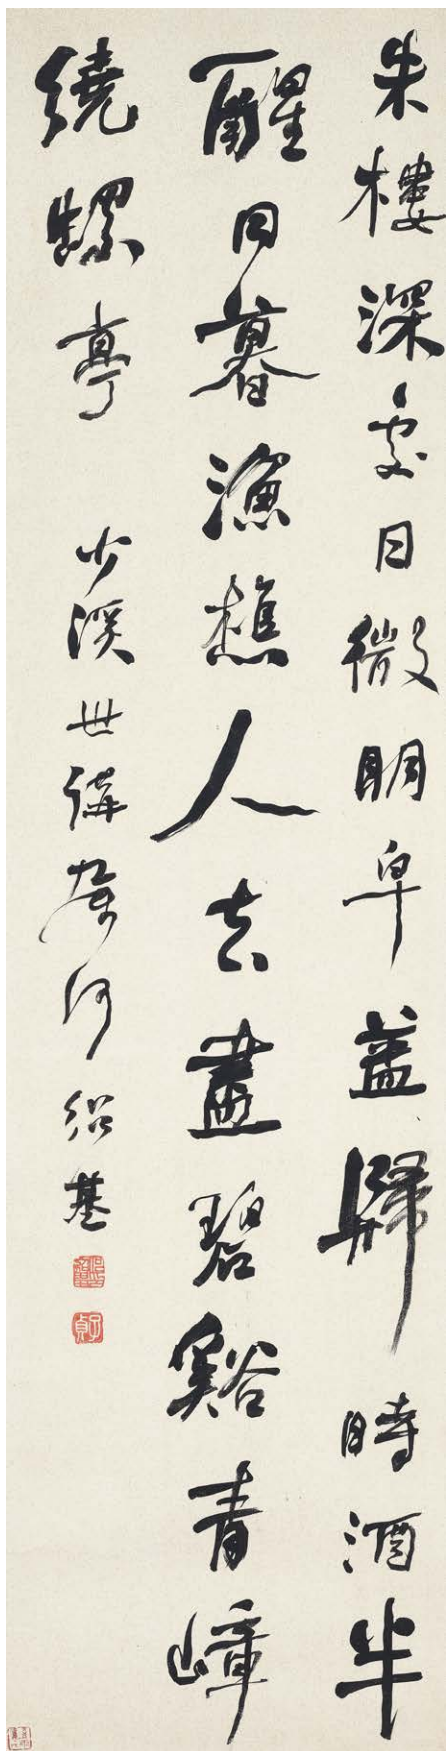 朱樓深處日微明皁蓋歸時酒半
醒日暮漁樵人去盡碧谿青嶂
繞螺亭 少溪世講屬何紹基
子貞